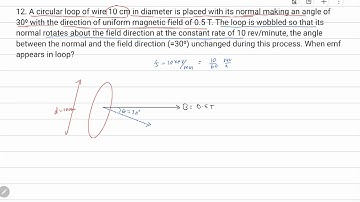 12. A circular loop of wire 10 cm in diameter is placed with its normal making an angle of
30º with the direction of uniform magnetic field of 0.5 T. The loop is wobbled so that its
normal rotates about the field direction at the constant rate of 10 rev/minute, the angle
between the normal and the field direction (=30º) unchanged during this process. When emf
appears in loop?
f = 10 rev/min = 10/60 rev/s
d=10cm
θ=30°
B = 0.5 T